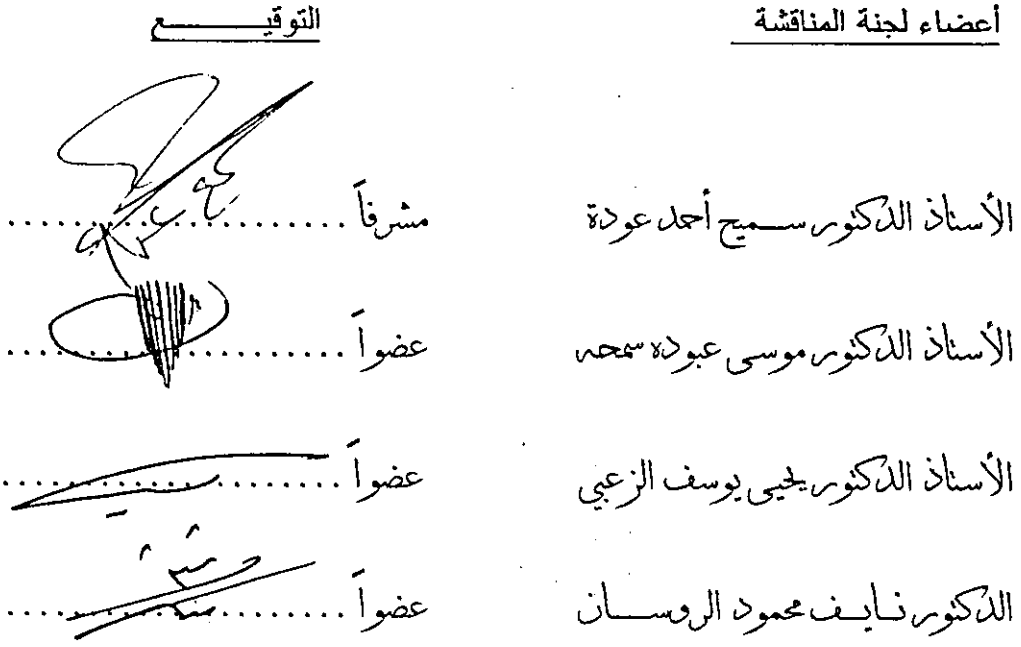 أعضاء لجنة المناقشة التوقيــــــع
الأستاذ الدكتور سـميح أحمد عودة مشرفاً ..................
الأستاذ الدكتور موسى عبوده سمحه عضواً ..................
الأستاذ الدكتور يحيى يوسف الزعبي عضواً ..................
الدكتور نـايـف محمود الروسـان عضواً ..................